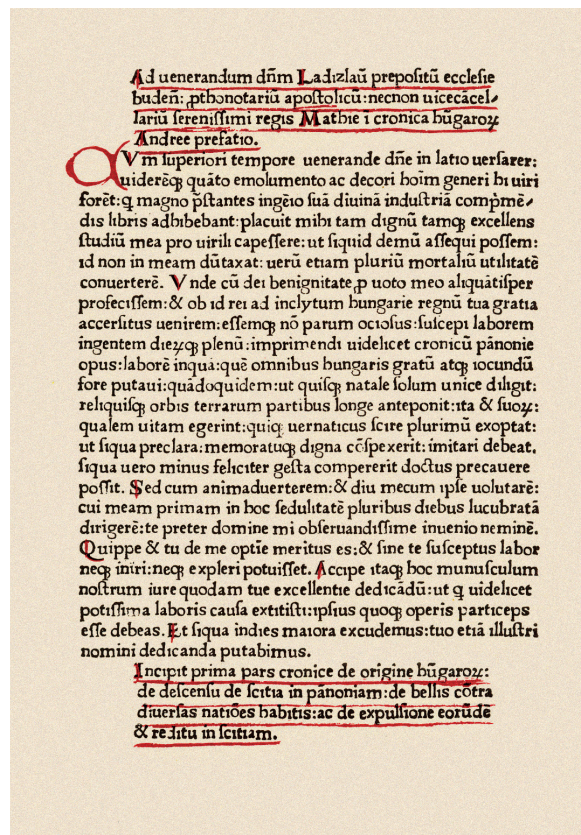 Ad uenerandum dñm Ladizlaū prepoſitū eccleſie
budeñ: ꝓthonotariū apoſtolicū: necnon uicecācel-
lariū ſereniſſimi regis Mathie ī cronica hūgaroꝝ
Andree prefatio.
QVm ſuperiori tempore uenerande dñe in latio uerſarer:
uiderēqꝫ quāto emolumento ac decori hoīm generi hi uiri
forēt: q magno p̄ſtantes ingēio ſuā diuinā induſtriā compm̄e-
dis libris adhibebant: placuit mihi tam dignū tamqꝫ excellens
ſtudiū mea pro uirili capeſſere: ut ſiquid demū aſſequi poſſem:
id non in meam dūtaxat: uerū etiam pluriū mortaliū utilitatē
conuerterē. Vnde cū dei benignitate ꝓ uoto meo aliquātiſper
profeciſſem: & ob id rei ad inclytum hungarie regnū tua gratia
accerſitus uenirem: eſſemqꝫ nō parum ocioſus: ſuſcepi laborem
ingentem dieꝝqꝫ plenū: imprimendi uidelicet cronicū pānonie
opus: laborē inquā: quē omnibus hungaris gratū atqꝫ iocundū
fore putaui: quādoquidem: ut quiſqꝫ natale ſolum unice diligit:
reliquiſqꝫ orbis terrarum partibus longe anteponit: ita & ſuoꝝ:
qualem uitam egerint: quiqꝫ uernaticus ſcire plurimū exoptat:
ut ſiqua preclara: memoratuqꝫ digna cōſpexerit: imitari debeat.
ſiqua uero minus feliciter geſta compererit doctus precauere
poſſit. Sed cum animaduerterem: & diu mecum ipſe uolutarē:
cui meam primam in hoc ſedulitatē pluribus diebus lucubratā
dirigerē: te preter domine mi obſeruandiſſime inuenio neminē.
Quippe & tu de me optīe meritus es: & ſine te ſuſceptus labor
neqꝫ iniri: neqꝫ expleri potuiſſet. Accipe itaqꝫ hoc munuſculum
noſtrum iure quodam tue excellentie dedicādū: ut q uidelicet
potiſſima laboris cauſa extitiſti: ipſius quoqꝫ operis particeps
eſſe debeas. Et ſiqua indies maiora excudemus: tuo etiā illuſtri
nomini dedicanda putabimus.
Incipit prima pars cronice de origine hūgaroꝝ:
de deſcenſu de ſcitia in pānoniam: de bellis cōtra
diuerſas natiōes habitis: ac de expulſione eorūdē
& reditu in ſcitiam.